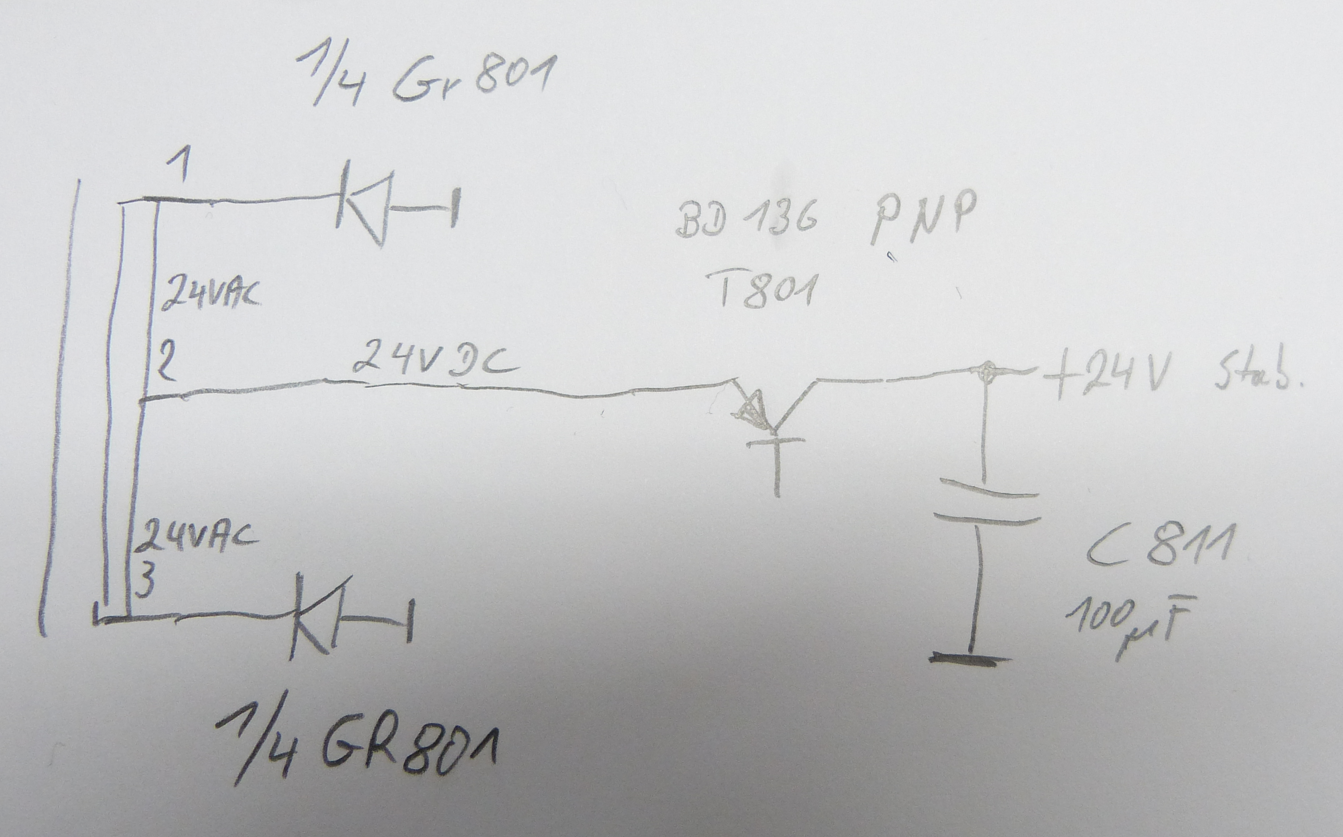 1/4 Gr 801
1
BD 136 PNP
T801
24VAC
2
24V DC
+24V Stab.
24VAC
3
C 811
100µF
1/4 GR801